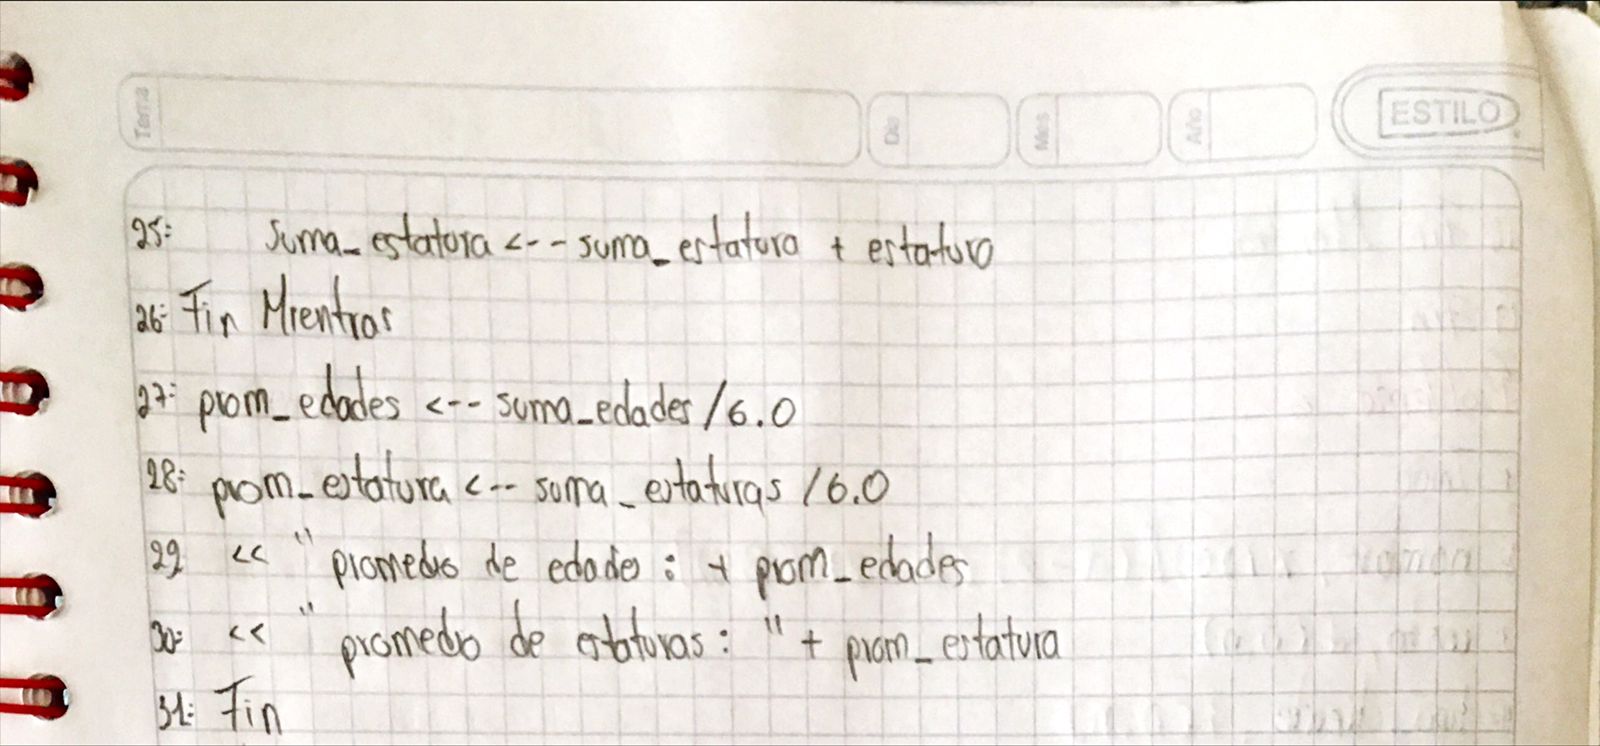 Tema
De
Mes
Año
ESTILO
25: suma_estatura <-- suma_estatura + estatura
26: Fin Mientras
27: prom_edades <-- suma_edades /6.0
28: prom_estatura <-- suma_estaturas /6.0
29 << " promedio de edades : + prom_edades
30: << " promedio de estaturas : " + prom_estatura
31: Fin